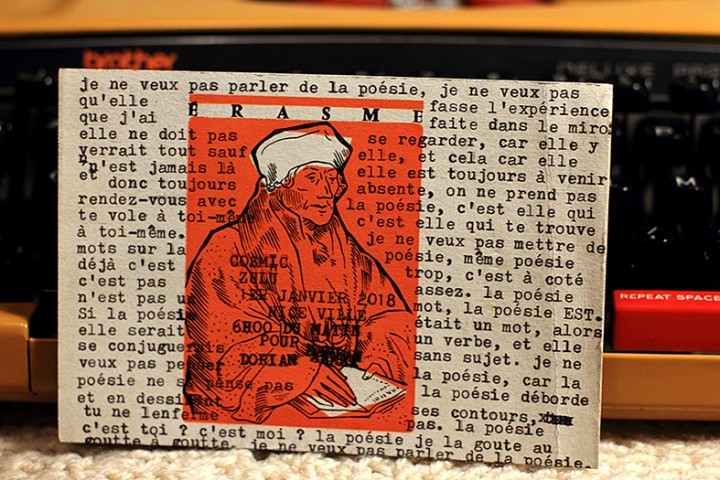 brother
REPEAT SPACE
je ne veux pas parler de la poésie, je ne veux pas
qu'elle fasse l'expérience
ÉRASME
que j'ai faite dans le miro
elle ne doit pas se regarder, car elle y
verrait tout sauf elle, et cela car elle
n'est jamais là elle est toujours à venir
et donc toujours absente, on ne prend pas
rendez-vous avec la poésie, c'est elle qui
te vole à toi-même c'est elle qui te trouve
à toi-même. je ne veux pas mettre de
mots sur la poésie, même poésie
déjà c'est trop, c'est à côté
c'est pas assez. la poésie
n'est pas un mot, la poésie EST.
Si la poésie était un mot, alors
elle serait un verbe, et elle
se conjuguerais sans sujet. je ne
veux pas penser la poésie, car la
poésie ne se pense pas la poésie déborde
et en dessinant ses contours,
tu ne l'enferme pas. la poésie
c'est toi ? c'est moi ? la poésie je la goute au
goutte à goutte. je ne veux pas parler de la poésie.
COSMIC
ZULU
1ER JANVIER 2018
NICE VILLE
6H00 DU MATIN
POUR
DORIAN